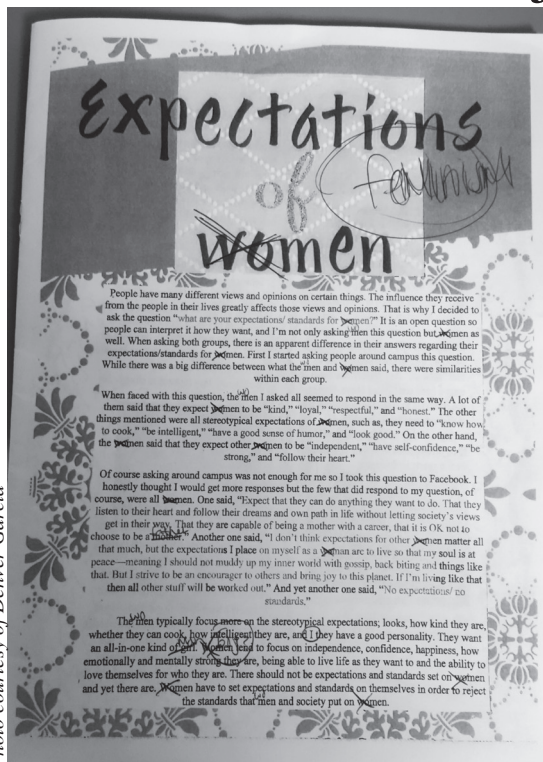 Expectations
of
women
People have many different views and opinions on certain things. The influence they receive
from the people in their lives greatly affects those views and opinions. That is why I decided to
ask the question “what are your expectations/ standards for women?” It is an open question so
people can interpret it how they want, and I'm not only asking men this question but women as
well. When asking both groups, there is an apparent difference in their answers regarding their
expectations/standards for women. First I started asking people around campus this question.
While there was a big difference between what the men and women said, there were similarities
within each group.
When faced with this question, the men I asked all seemed to respond in the same way. A lot of
them said that they expect women to be “kind,” “loyal,” “respectful,” and “honest.” The other
things mentioned were all stereotypical expectations of women, such as, they need to “know how
to cook,” “be intelligent,” “have a good sense of humor,” and “look good.” On the other hand,
the women said that they expect other women to be “independent,” “have self-confidence,” “be
strong,” and “follow their heart.”
Of course asking around campus was not enough for me so I took this question to Facebook. I
honestly thought I would get more responses but the few that did respond to my question, of
course, were all women. One said, “Expect that they can do anything they want to do. That they
listen to their heart and follow their dreams and own path in life without letting society's views
get in their way. That they are capable of being a mother with a career, that it is OK not to
choose to be a mother.” Another one said, “I don't think expectations for other women matter all
that much, but the expectations I place on myself as a woman are to live so that my soul is at
peace—meaning I should not muddy up my inner world with gossip, back biting and things like
that. But I strive to be an encourager to others and bring joy to this planet. If I'm living like that
then all other stuff will be worked out.” And yet another one said, “No expectations/ no
standards.”
The men typically focus more on the stereotypical expectations; looks, how kind they are,
whether they can cook, how intelligent they are, and I they have a good personality. They want
an all-in-one kind of girl. Women tend to focus on independence, confidence, happiness, how
emotionally and mentally strong they are, being able to live life as they want to and the ability to
love themselves for who they are. There should not be expectations and standards set on women
and yet there are. Women have to set expectations and standards on themselves in order to reject
the standards that men and society put on women.
courtesy of Denver Garcia